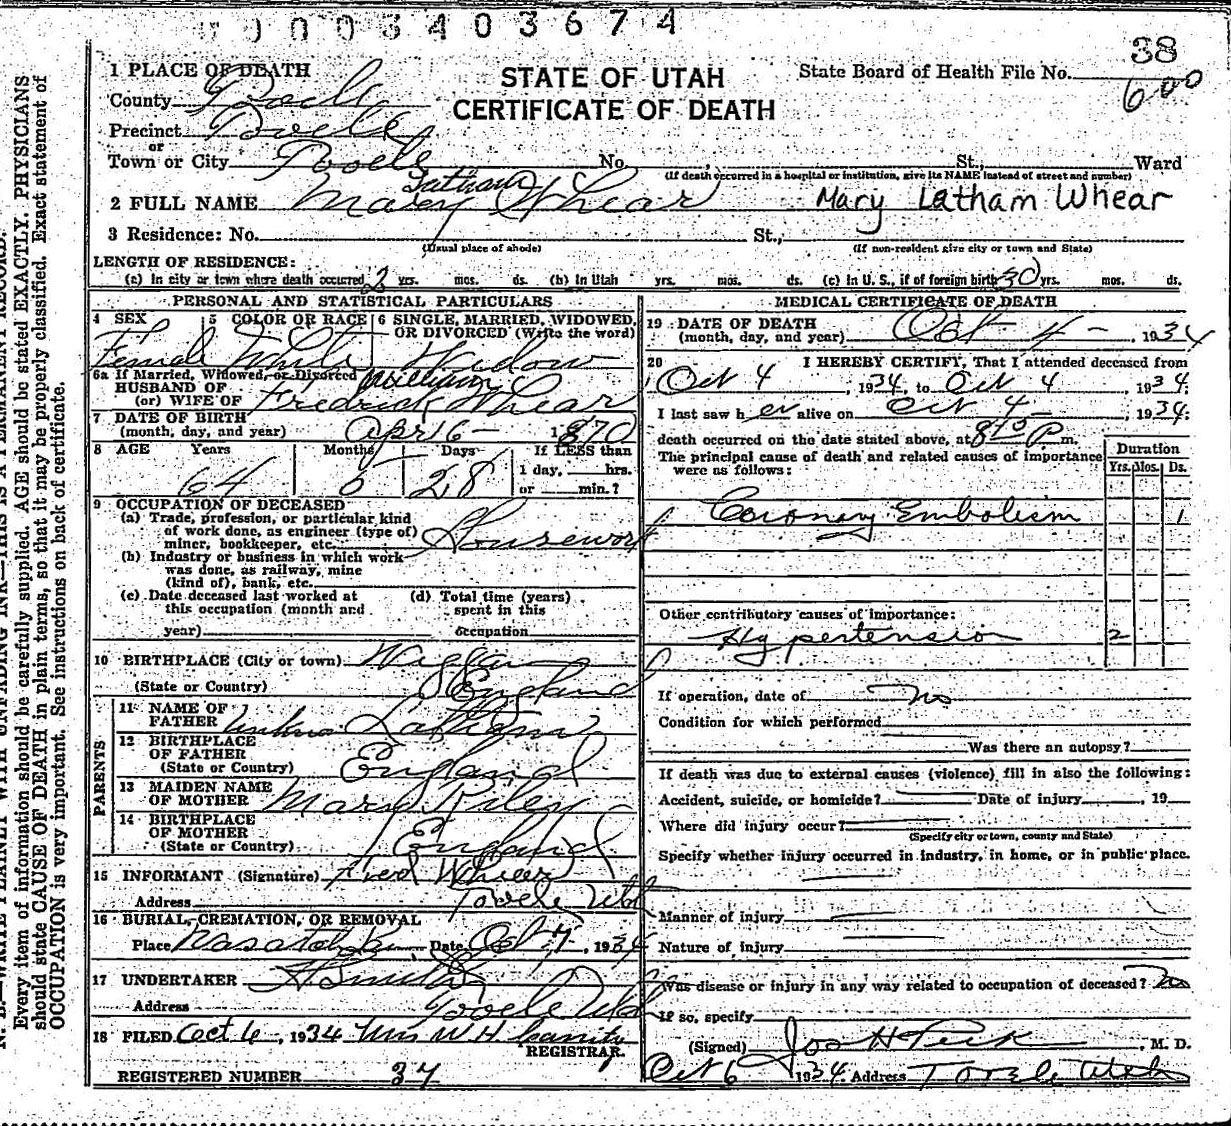 0003403674
38
600
1 PLACE OF DEATH
STATE OF UTAH
CERTIFICATE OF DEATH
State Board of Health File No.
County Tooele
Precinct Tooele
or
Town or City Tooele No. St., Ward
(If death occurred in a hospital or institution, give its NAME instead of street and number)
2 FULL NAME Mary Latham Whear Mary Latham Whear
3 Residence: No. St.,
(Usual place of abode) (If non-resident give city or town and State)
LENGTH OF RESIDENCE:
(a) In city or town where death occurred 2 yrs. mos. ds. (b) In Utah yrs. mos. ds. (c) In U. S., if of foreign birth 30 yrs. mos. ds.
PERSONAL AND STATISTICAL PARTICULARS
4 SEX 5 COLOR OR RACE 6 SINGLE, MARRIED, WIDOWED, OR DIVORCED (Write the word)
Female White Widow
6a If Married, Widowed, or Divorced
HUSBAND OF
(or) WIFE OF Fredrick William Whear
7 DATE OF BIRTH
(month, day, and year) Apr 6 - 1870
8 AGE Years Months Days If LESS than
1 day, hrs.
or min.?
64 5 28
9 OCCUPATION OF DECEASED
(a) Trade, profession, or particular kind
of work done, as engineer (type of)
miner, bookkeeper, etc. Housework
(b) Industry or business in which work
was done, as railway, mine
(kind of), bank, etc.
(c) Date deceased last worked at
this occupation (month and
year)
(d) Total time (years)
spent in this
occupation
10 BIRTHPLACE (City or town)
(State or Country) England
PARENTS
11 NAME OF
FATHER Latham
12 BIRTHPLACE
OF FATHER
(State or Country) England
13 MAIDEN NAME
OF MOTHER Mary Riley
14 BIRTHPLACE
OF MOTHER
(State or Country) England
15 INFORMANT (Signature) Fred Whear
Address Tooele Utah
16 BURIAL, CREMATION, OR REMOVAL
Place Date Oct 7, 1934
17 UNDERTAKER
Address Tooele Utah
18 FILED Oct 6, 1934 Mrs W H
REGISTRAR.
REGISTERED NUMBER 37
MEDICAL CERTIFICATE OF DEATH
19 DATE OF DEATH
(month, day, and year) Oct 4 - 1934
20 I HEREBY CERTIFY, That I attended deceased from
Oct 4, 1934, to Oct 4, 1934.
I last saw her alive on Oct 4 -, 1934.
death occurred on the date stated above, at P m.
The principal cause of death and related causes of importance
were as follows:
Duration
Yrs. Mos. Ds.
Coronary Embolism 1
Other contributory causes of importance:
Hypertension 2
If operation, date of no
Condition for which performed
Was there an autopsy?
If death was due to external causes (violence) fill in also the following:
Accident, suicide, or homicide? Date of injury , 19
Where did injury occur?
(Specify city or town, county and State)
Specify whether injury occurred in industry, in home, or in public place.
Manner of injury
Nature of injury
Was disease or injury in any way related to occupation of deceased? No
If so, specify
(Signed) Jos H Peck, M. D.
Oct 6 1934. Address Tooele Utah
Every item of information should be carefully supplied. AGE should be stated EXACTLY. PHYSICIANS
should state CAUSE OF DEATH in plain terms, so that it may be properly classified. Exact statement of
OCCUPATION is very important. See instructions on back of certificate.